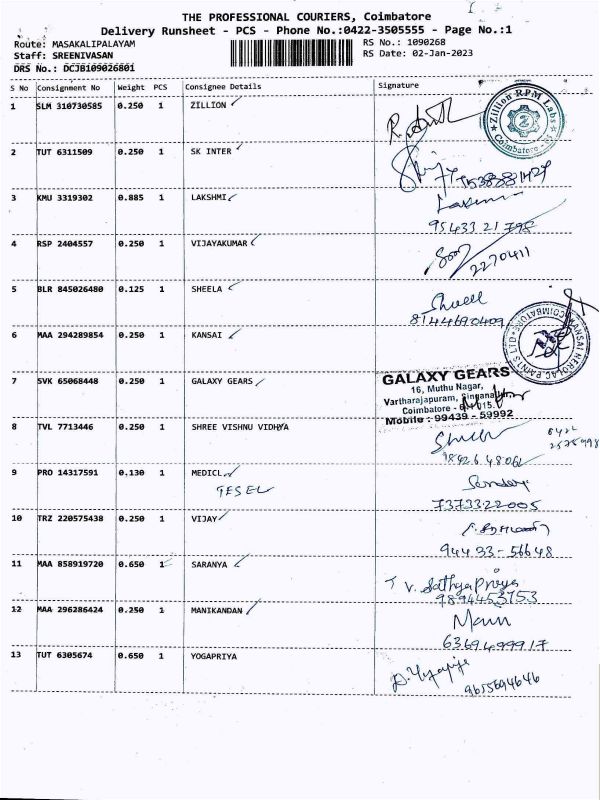 THE PROFESSIONAL COURIERS, Coimbatore
Delivery Runsheet - PCS - Phone No.:0422-3505555 - Page No.:1
Route: MASAKALIPALAYAM RS No.: 1090268
Staff: SREENIVASAN RS Date: 02-Jan-2023
DRS No.: DCJB109026801
S No Consignment No Weight PCS Consignee Details Signature
1 SLM 310730585 0.250 1 ZILLION
Zillion RPM Labs Coimbatore
2 TUT 6311509 0.250 1 SK INTER
3 KMU 3319302 0.885 1 LAKSHMI
95433 21798
4 RSP 2404557 0.250 1 VIJAYAKUMAR
2270411
5 BLR 845026480 0.125 1 SHEELA
8144690409
6 MAA 294289854 0.250 1 KANSAI
KANSAI NEROLAC PAINTS LTD COIMBATORE
7 SVK 65068448 0.250 1 GALAXY GEARS
GALAXY GEARS
16, Muthu Nagar,
Vartharajapuram, Singanallur,
Coimbatore - 641 015.
Mobile : 99439 - 59992
8 TVL 7713446 0.250 1 SHREE VISHNU VIDHYA
9 PRO 14317591 0.130 1 MEDICL
TESEL
7373322005
10 TRZ 220575438 0.250 1 VIJAY
94433-56648
11 MAA 858919720 0.650 1 SARANYA
T V. Sathya Priya
9894453753
12 MAA 296286424 0.250 1 MANIKANDAN
6369499917
13 TUT 6305674 0.650 1 YOGAPRIYA
9655694646